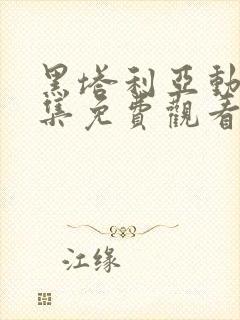 黑塔利亞動
集免費觀看
江缘